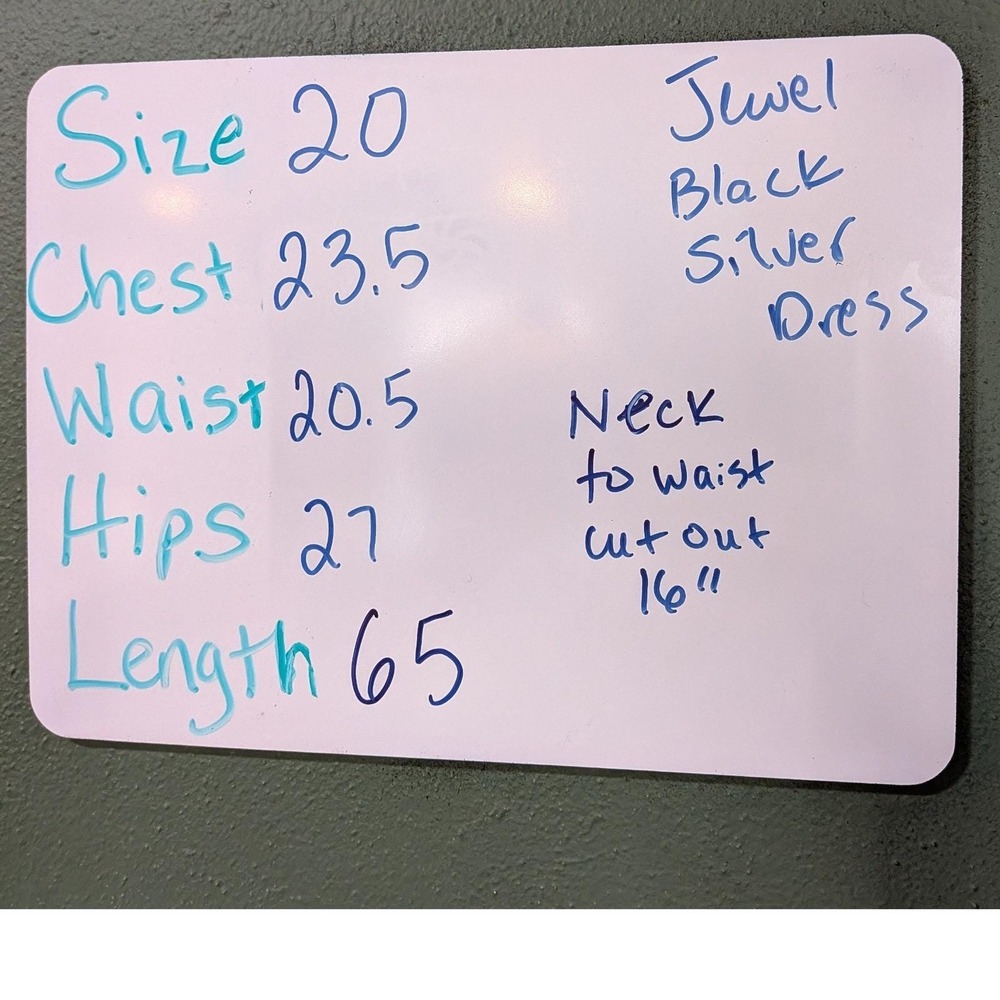 Size 20
Chest 23.5
Waist 20.5
Hips 27
Length 65
Jewel
Black
Silver
Dress
Neck
to waist
cut out
16"